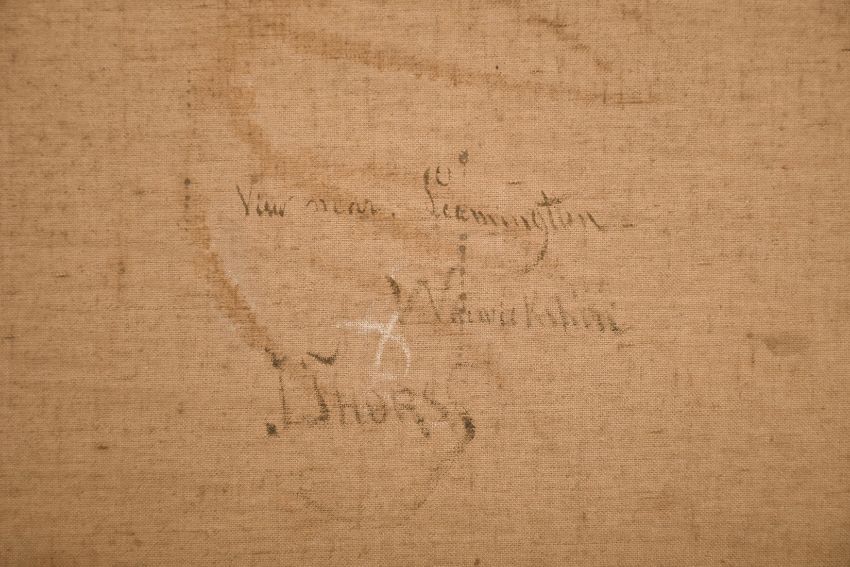 View near Leamington
Warwickshire
J Thors